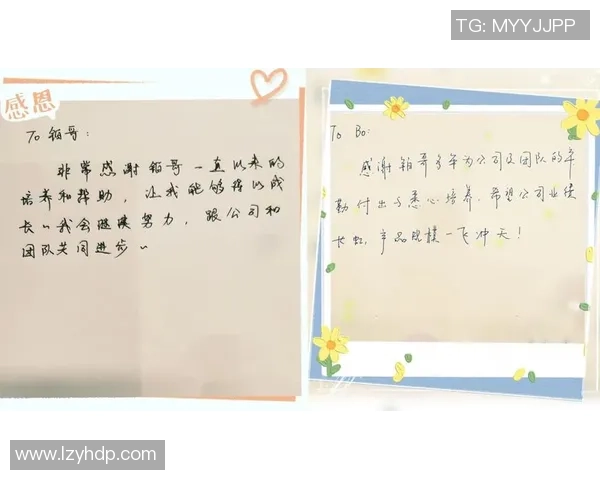 TG: MYYJJPP
感恩
To 铂哥:
非常感谢铂哥一直以来的
培养和帮助,让我能够得以成
长~我会继续努力,跟公司和
团队共同进步~
To Bo:
感谢铂哥多年为公司及团队的辛
勤付出与悉心培养.希望公司业绩
长虹,产品规模一飞冲天!
www.lzyhdp.com